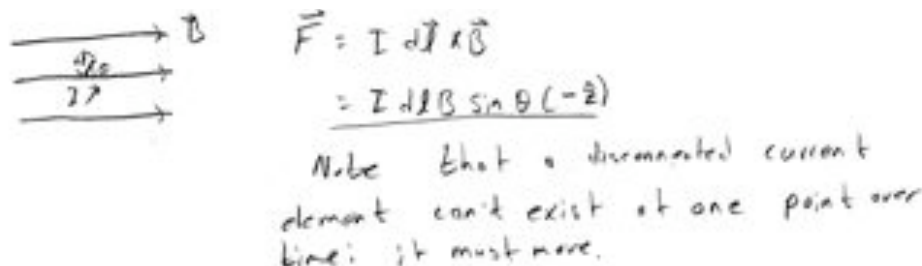 B⃗
F⃗ = I dl⃗ x B⃗
= I dl B sin θ (-ẑ)
Note that a disconnected current
element can't exist at one point over
time; it must move.